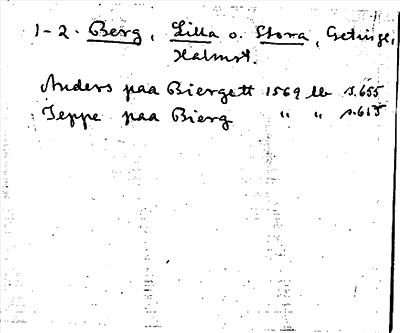 1-2. Berg, Lilla o. Stora, Getinge,
Halmst.
Anders paa Biergett 1569 lb s.655
Jeppe paa Bierg " " s.615